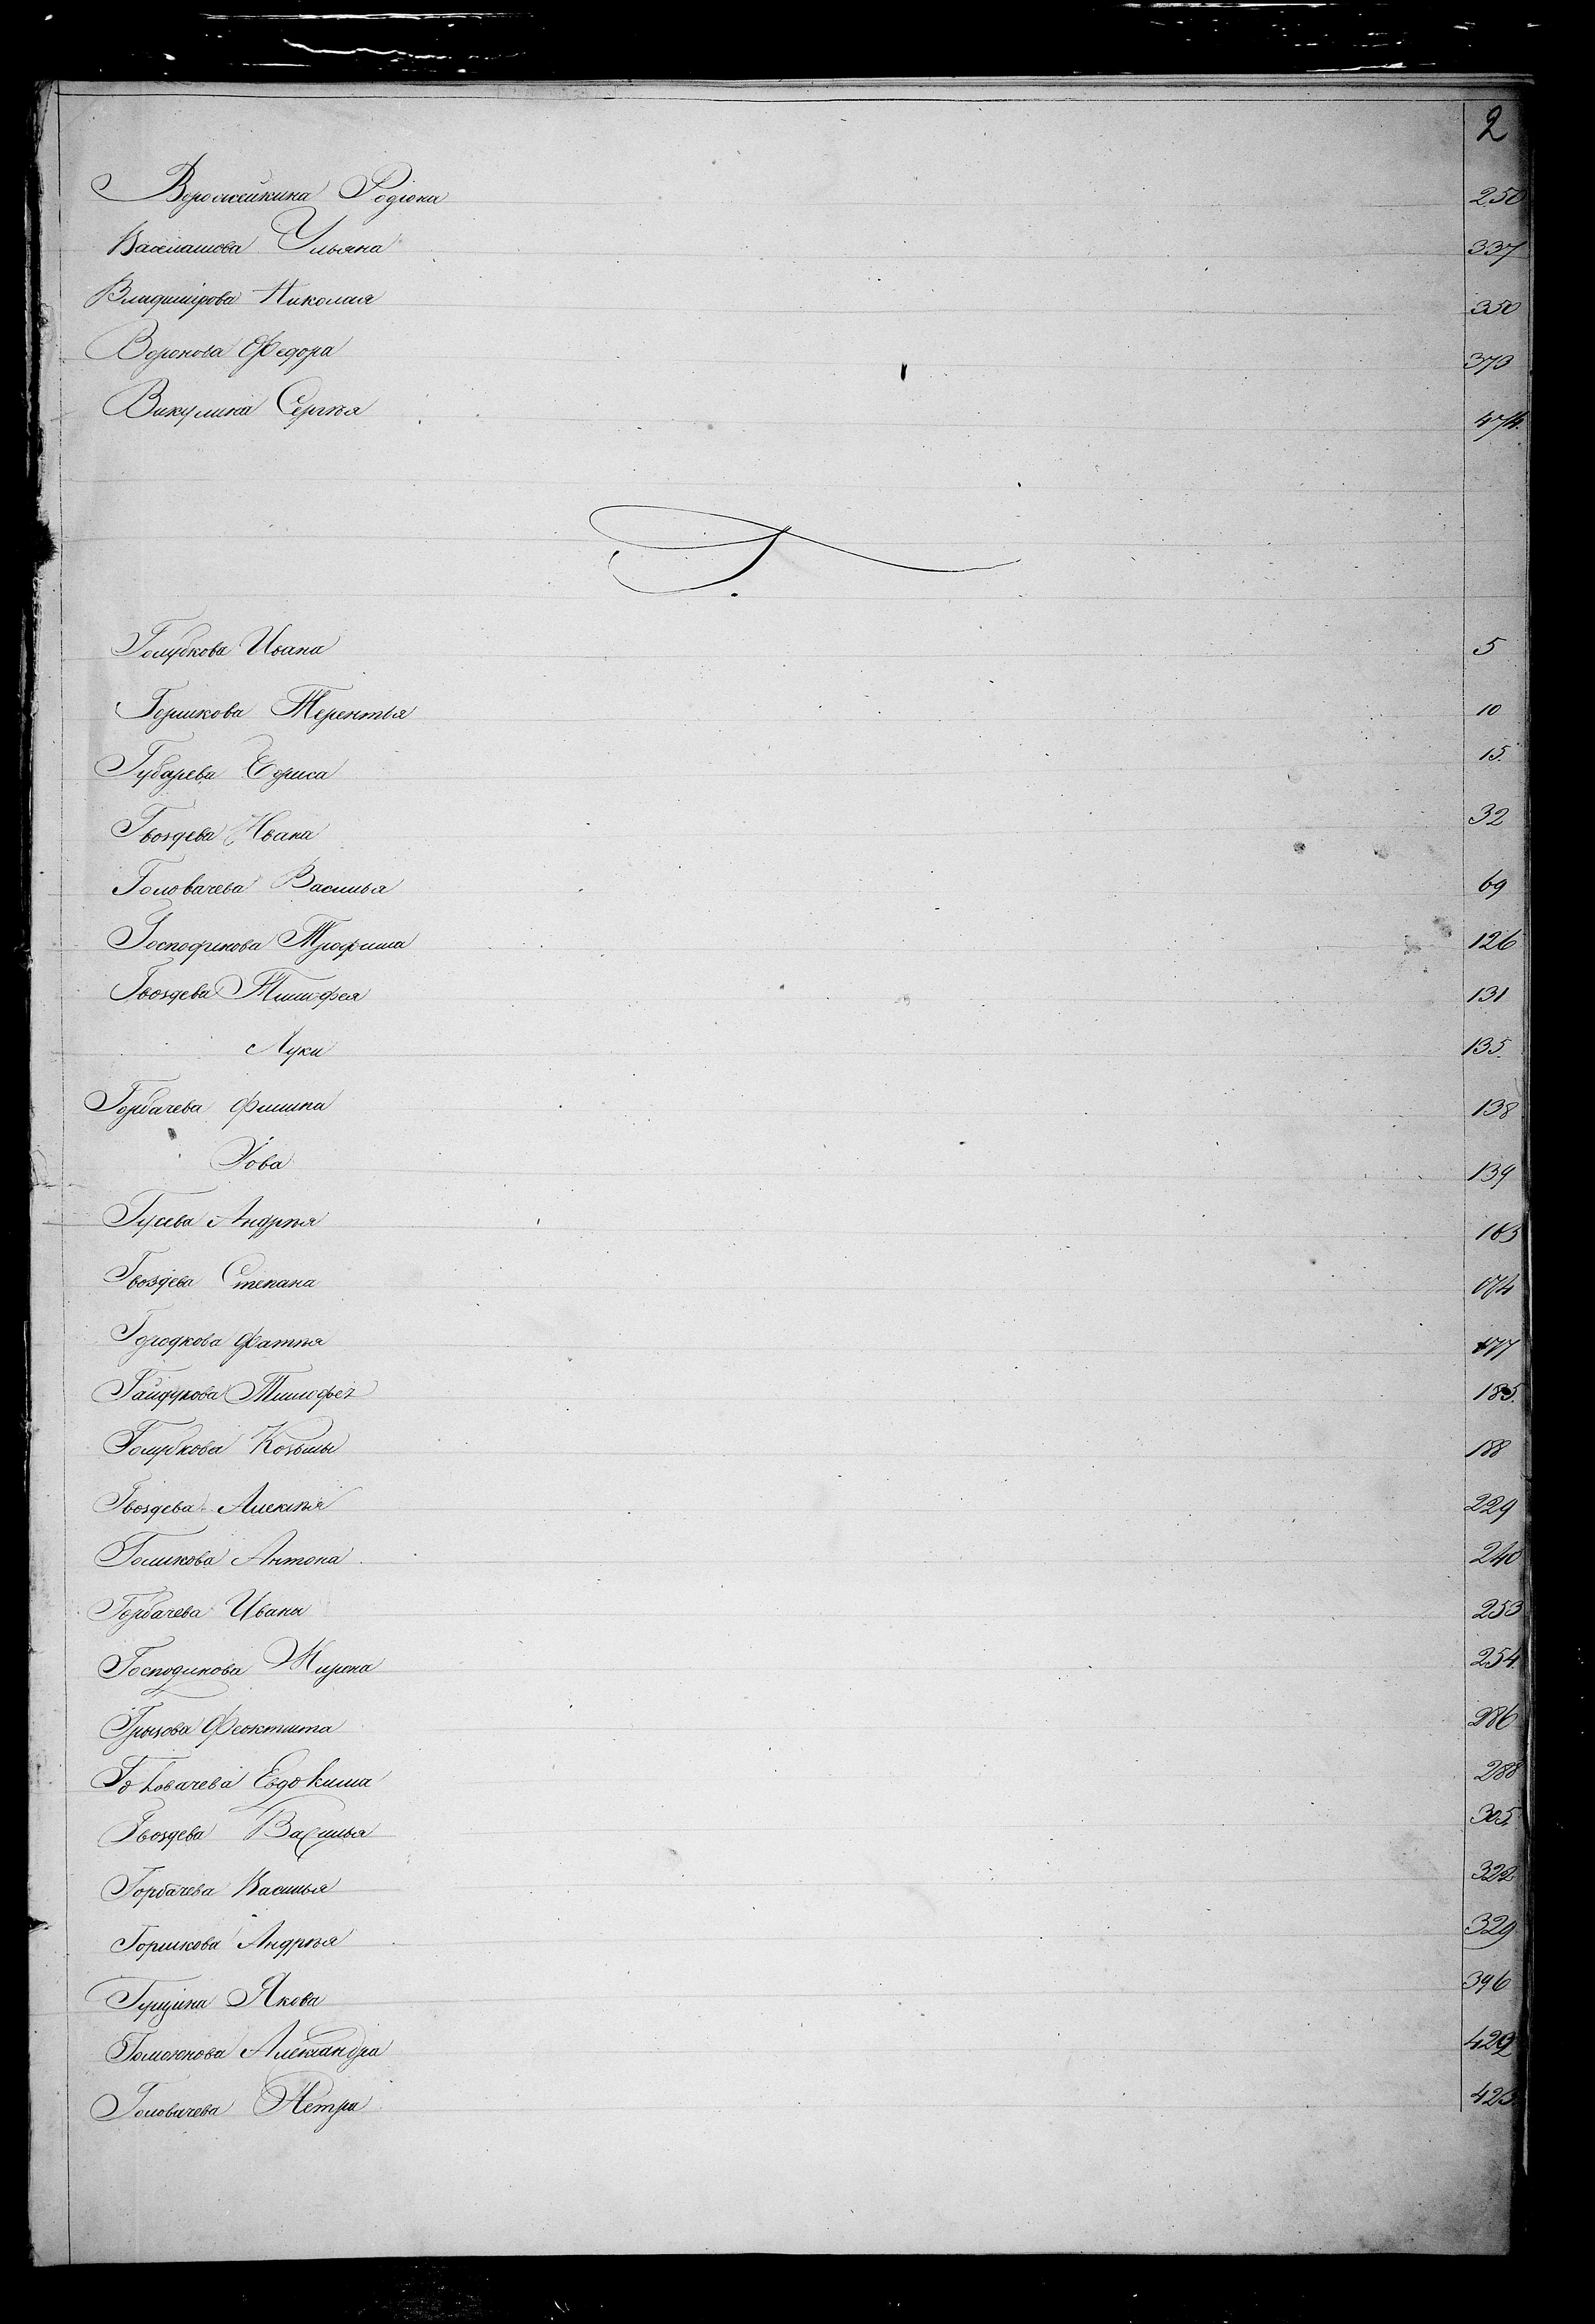 2
Ворожейкина Родіона 250
Ульяна 337
Владимірова Николая 350
Воронова Федора 373
Викулина Сергѣя 474.
Г.
Голубкова Ивана 5
Горшкова Терентья 10
Губарева 15.
Гвоздева Ивана 32
Головачева Василья 69
Господинова Трофима 126
Гвоздева Тимофея 131
Луки 135.
Горбачева Филипа 138
Іова 139
Гусева Андрѣя 163
Гвоздева Степана 174
Городкова Фатѣя 177
Гайдукова Тимофея 185.
Голубкова Козьмы 188
Гвоздева Алексѣя 229
Голикова Антона 240
Горбачева Ивана 253
Господинова Мирона 254
Грызова Феоктиста 286
Головачева Евдокима 288
Гвоздева Василья 305
Горбачева Василья 322
Горшкова Андрѣя 329
Гущина Якова 396
Александра 422
Головачева Петра 423.